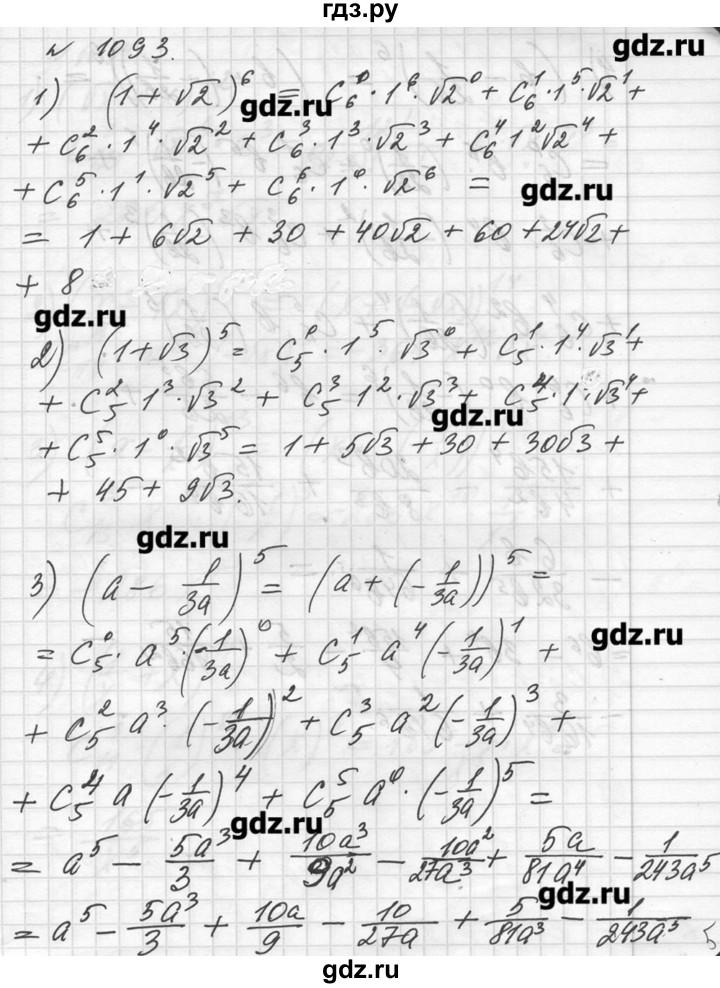 гдз.ру
№ 1093.
gdz.ru
1) (1 + √2)^6 = C_6^0 · 1^6 · √2^0 + C_6^1 · 1^5 · √2^1 +
gdz.ru
+ C_6^2 · 1^4 · √2^2 + C_6^3 · 1^3 · √2^3 + C_6^4 1^2 √2^4 +
+ C_6^5 · 1^1 · √2^5 + C_6^6 · 1^0 · √2^6 =
gdz.ru
= 1 + 6√2 + 30 + 40√2 + 60 + 24√2 +
+ 8
gdz.ru
2) (1 + √3)^5 = C_5^0 · 1^5 · √3^0 + C_5^1 · 1^4 · √3^1 +
+ C_5^2 · 1^3 · √3^2 + C_5^3 1^2 · √3^3 + C_5^4 · 1 · √3^4 +
gdz.ru
+ C_5^5 · 1^0 · √3^5 = 1 + 5√3 + 30 + 30√3 +
+ 45 + 9√3.
gdz.ru
3) (a − 1/3a)^5 = (a + (−1/3a))^5 =
gdz.ru
= C_5^0 · a^5 · (−1/3a)^0 + C_5^1 a^4 (−1/3a)^1 +
+ C_5^2 a^3 · (−1/3a)^2 + C_5^3 a^2 (−1/3a)^3 +
+ C_5^4 a (−1/3a)^4 + C_5^5 a^0 · (−1/3a)^5 =
gdz.ru
= a^5 − 5a^3/3 + 10a^3/9a^2 − 10a^2/27a^3 + 5a/81a^4 − 1/243a^5
gdz.ru
= a^5 − 5a^3/3 + 10a/9 − 10/27a + 5/81a^3 − 1/243a^5
gdz.ru